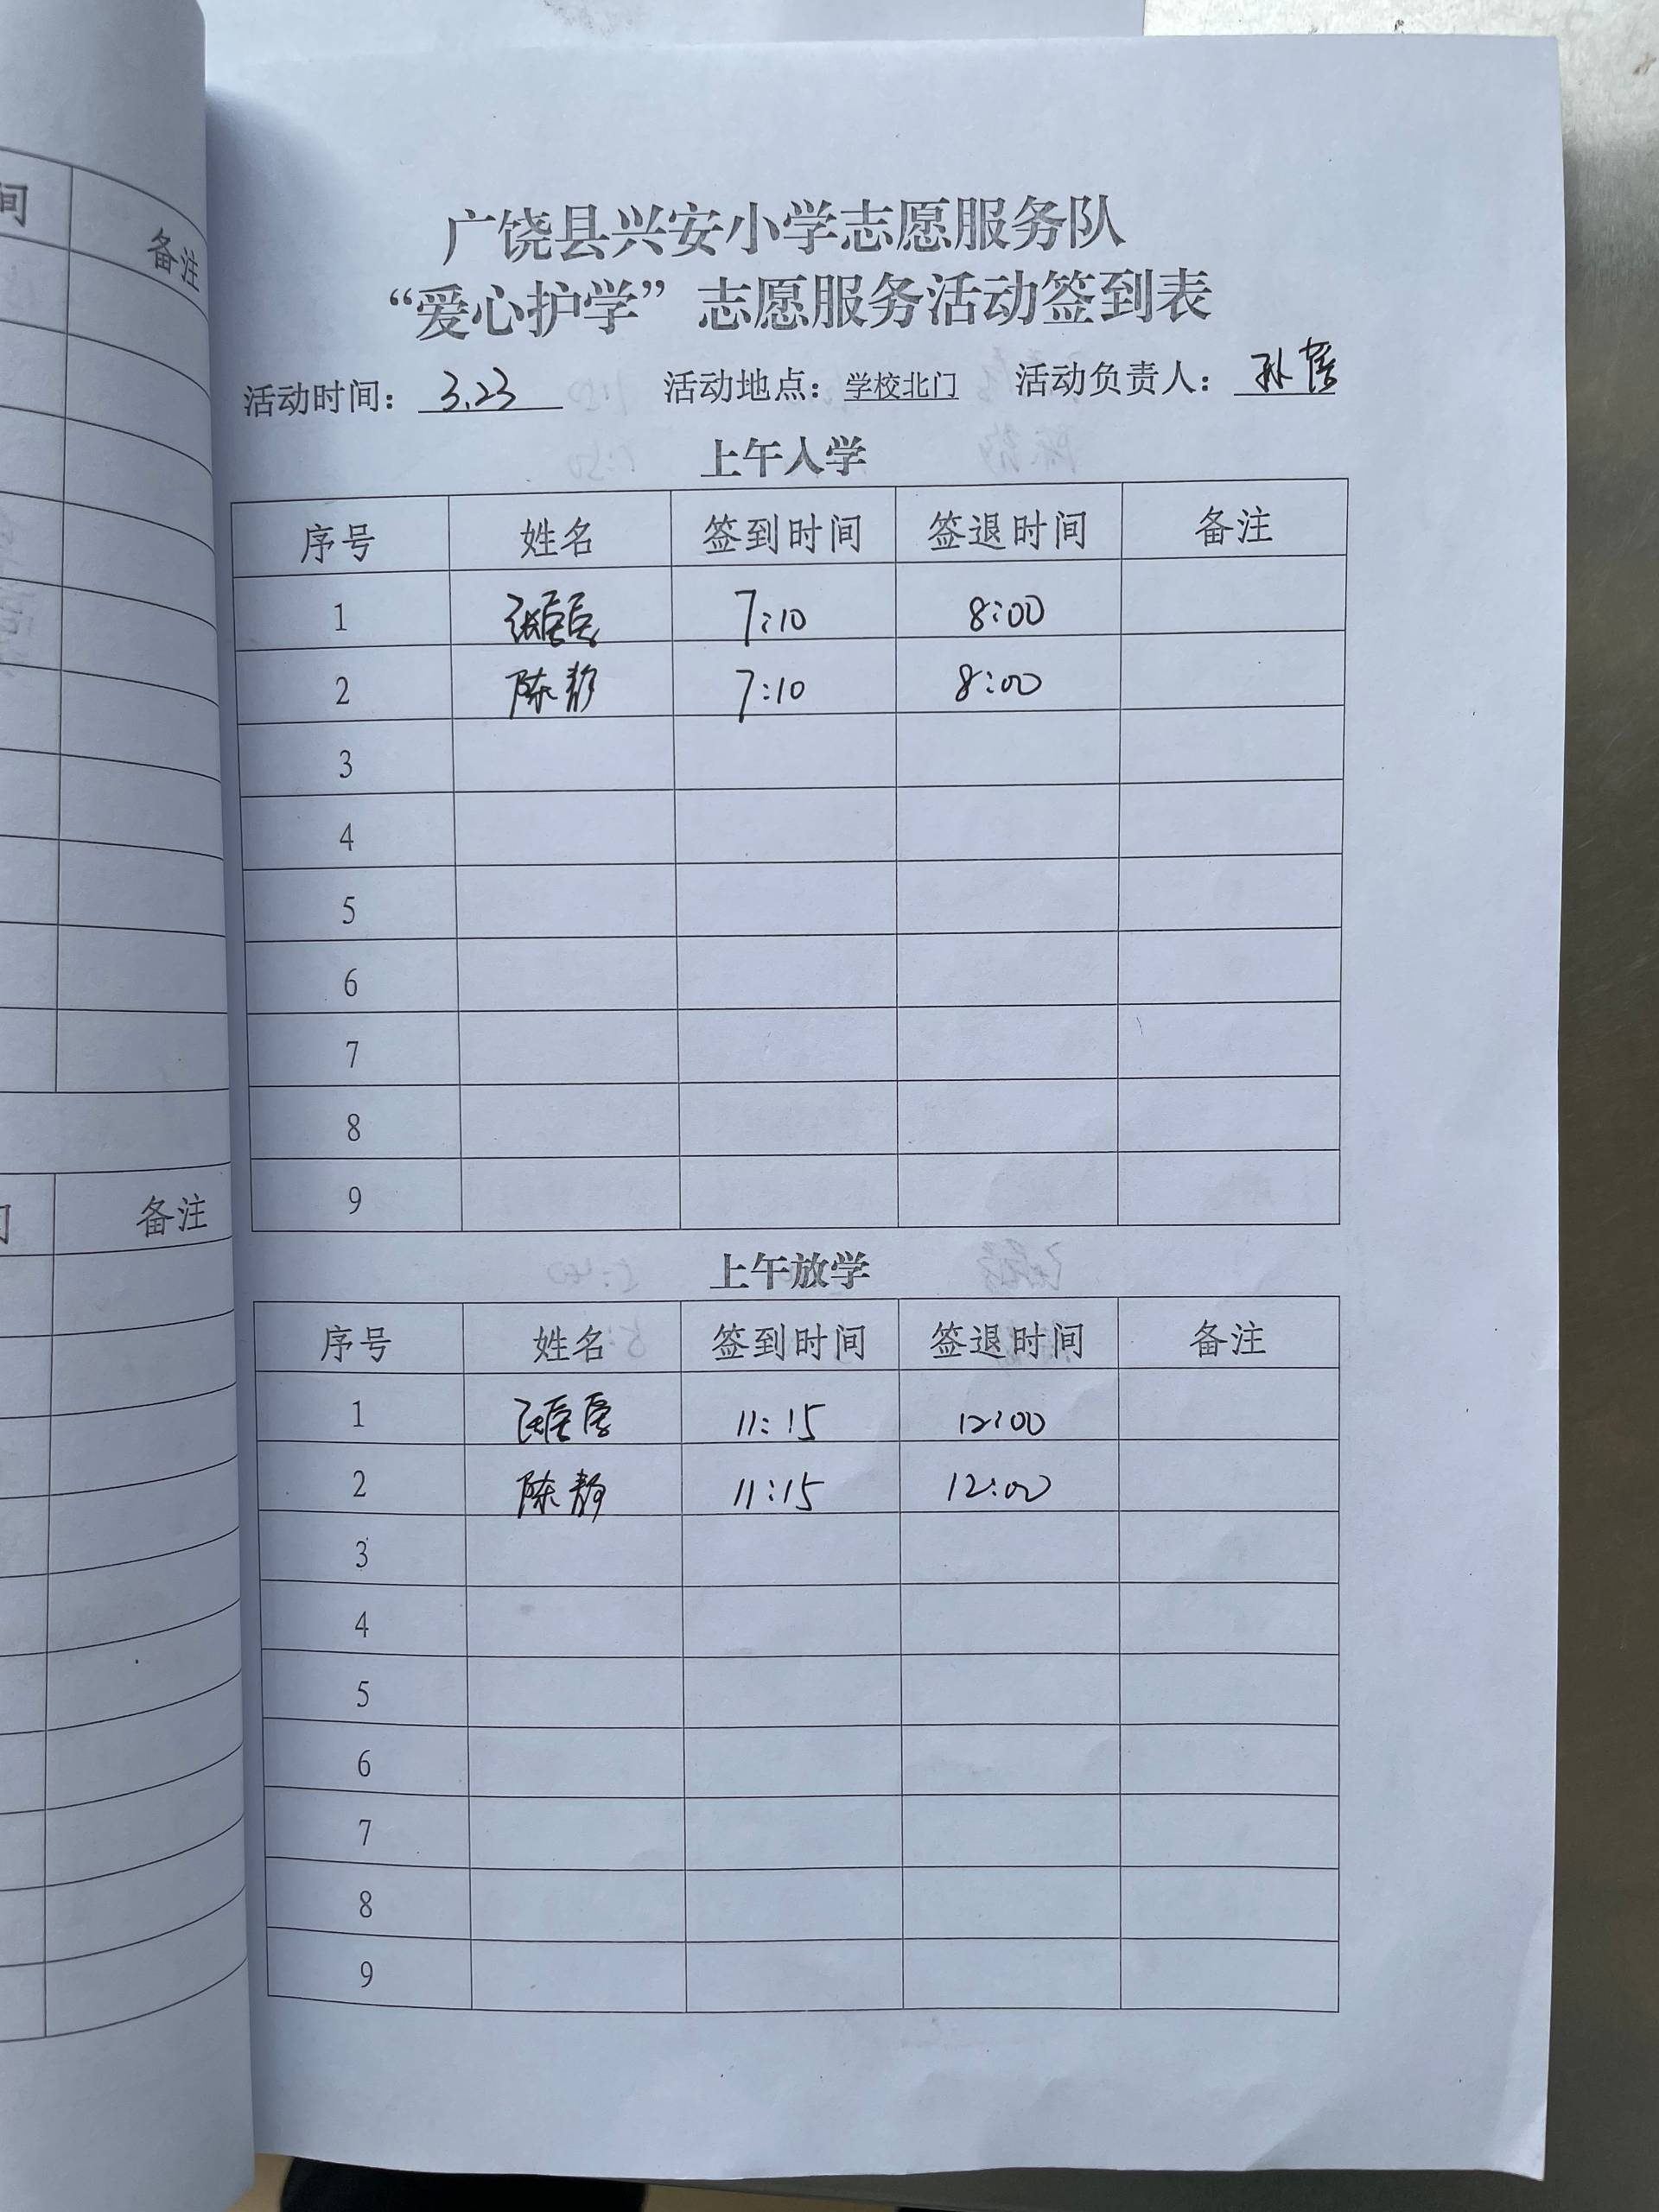 间 备注
备注
广饶县兴安小学志愿服务队
“爱心护学”志愿服务活动签到表
活动时间： 3.23 活动地点：学校北门 活动负责人： 孙
上午入学
序号 姓名 签到时间 签退时间 备注
1 张 7:10 8:00
2 陈静 7:10 8:00
3
4
5
6
7
8
9
上午放学
序号 姓名 签到时间 签退时间 备注
1 张 11:15 12:00
2 陈静 11:15 12:00
3
4
5
6
7
8
9